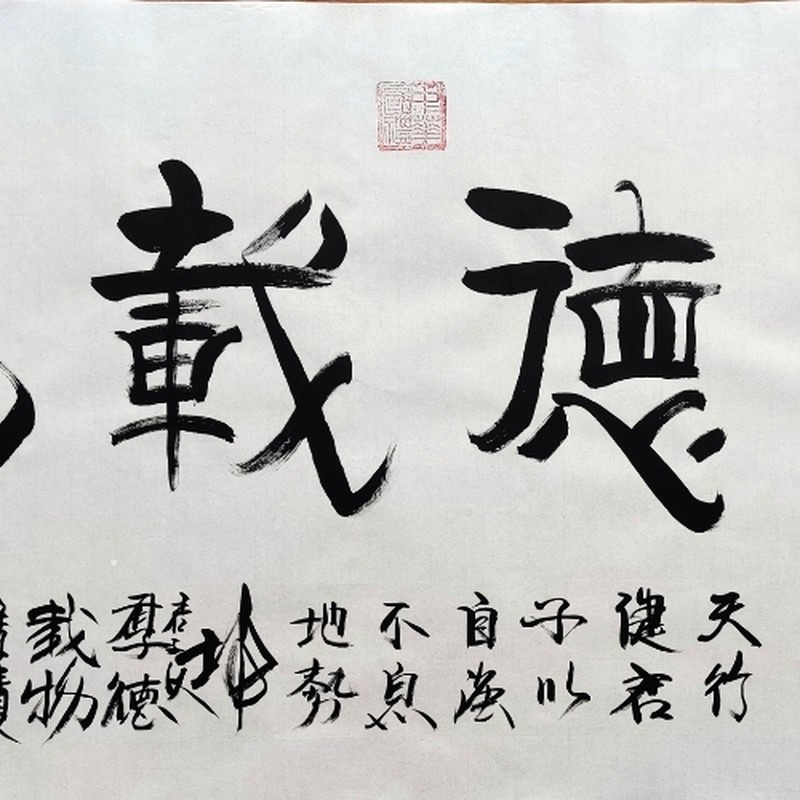 德載
天行
健君
子以
自强
不息
地勢
坤
君子以
厚德
載物